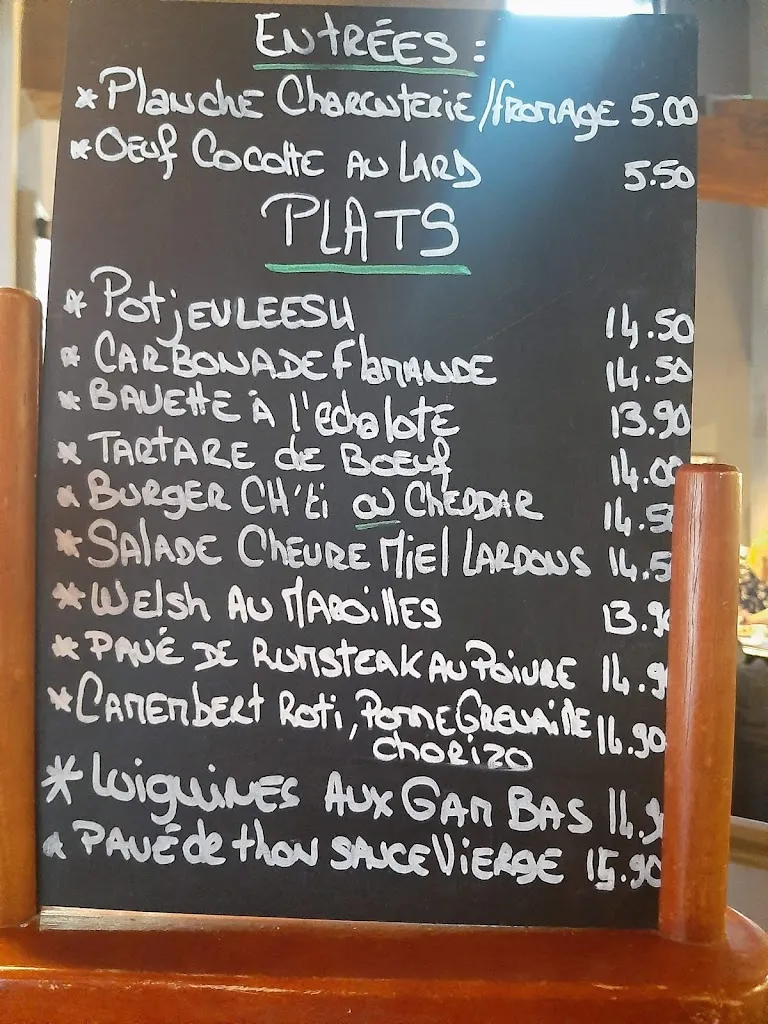 ENTRÉES :
* Planche Charcuterie/fromage 5.00
* Oeuf Cocotte au Lard 5.50
PLATS
* PotjEVLEESH 14.50
* CARBONADE flamande 14.50
* BAVEttE à l'échalote 13.90
* TARTARE de BOEuf 14.00
* BURGER CH'ti ou CHEDDAR 14.50
* SALADE CHEVRE Miel LARDONS 14.5
* WElsh AU MAROILLES 13.9
* PAVÉ DE RUMSTEAK AU POIVRE 14.9
* CAMEMbERT Roti, POMME GRENAillE 14.90
CHORIZO
* LinguiNES AUX GAMBAS 14.9
* PAVÉ de thon SAUCE ViERGE 15.90